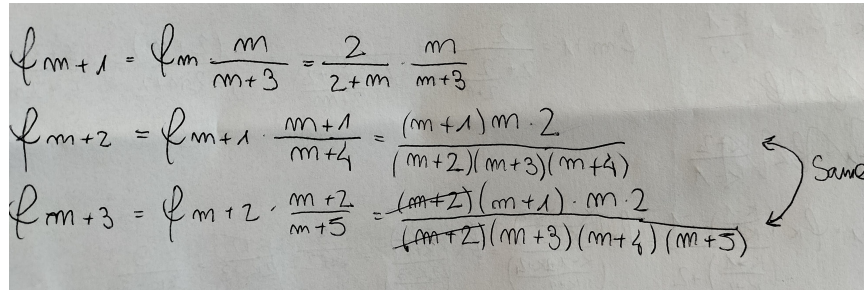 f m+1 = f m · m/(m+3) = 2/(2+m) · m/(m+3)
f m+2 = f m+1 · (m+1)/(m+4) = (m+1) m · 2/((m+2)(m+3)(m+4))
f m+3 = f m+2 · (m+2)/(m+5) = (m+2)(m+1) · m · 2/((m+2)(m+3)(m+4)(m+5))
Same